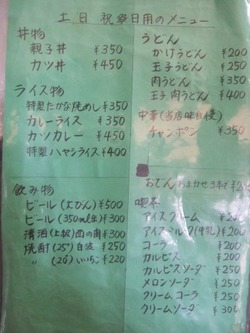 土日祝祭日用のメニュー
丼物
親子丼 ¥350
カツ丼 ¥450
ライス物
特製たかな焼めし ¥350
カレーライス ¥350
カツカレー ¥450
特製ハヤシライス ¥400
飲み物
ビール(大びん) ¥500
ビール(350ml缶) ¥300
清酒(上撰)西の関 ¥300
焼酎(25°)白波 ¥250
〃 (20)いいちこ ¥220
うどん
かけうどん ¥200
玉子うどん ¥250
肉うどん ¥350
玉子肉うどん ¥400
中華(当店味自慢)
チャンポン ¥350
おでん
3本
喫茶
アイスクリーム ¥200
アイスミルク(牛乳) ¥200
コーラ ¥200
カルピス ¥200
カルピスソーダ ¥250
メロンソーダ ¥250
クリームコーラ ¥250
クリームソーダ ¥300